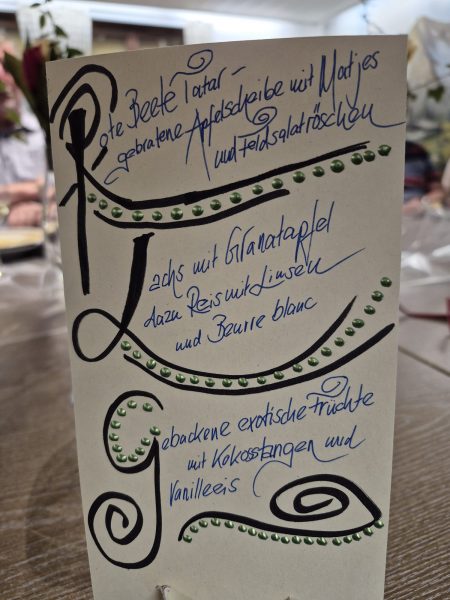 Rote Beete Tatar -
gebratene Apfelscheibe mit Matjes
und Feldsalatröschen
Lachs mit Granatapfel
dazu Reis mit Linsen
und Beurre blanc
Gebackene exotische Früchte
mit Kokosstangen und
Vanilleeis